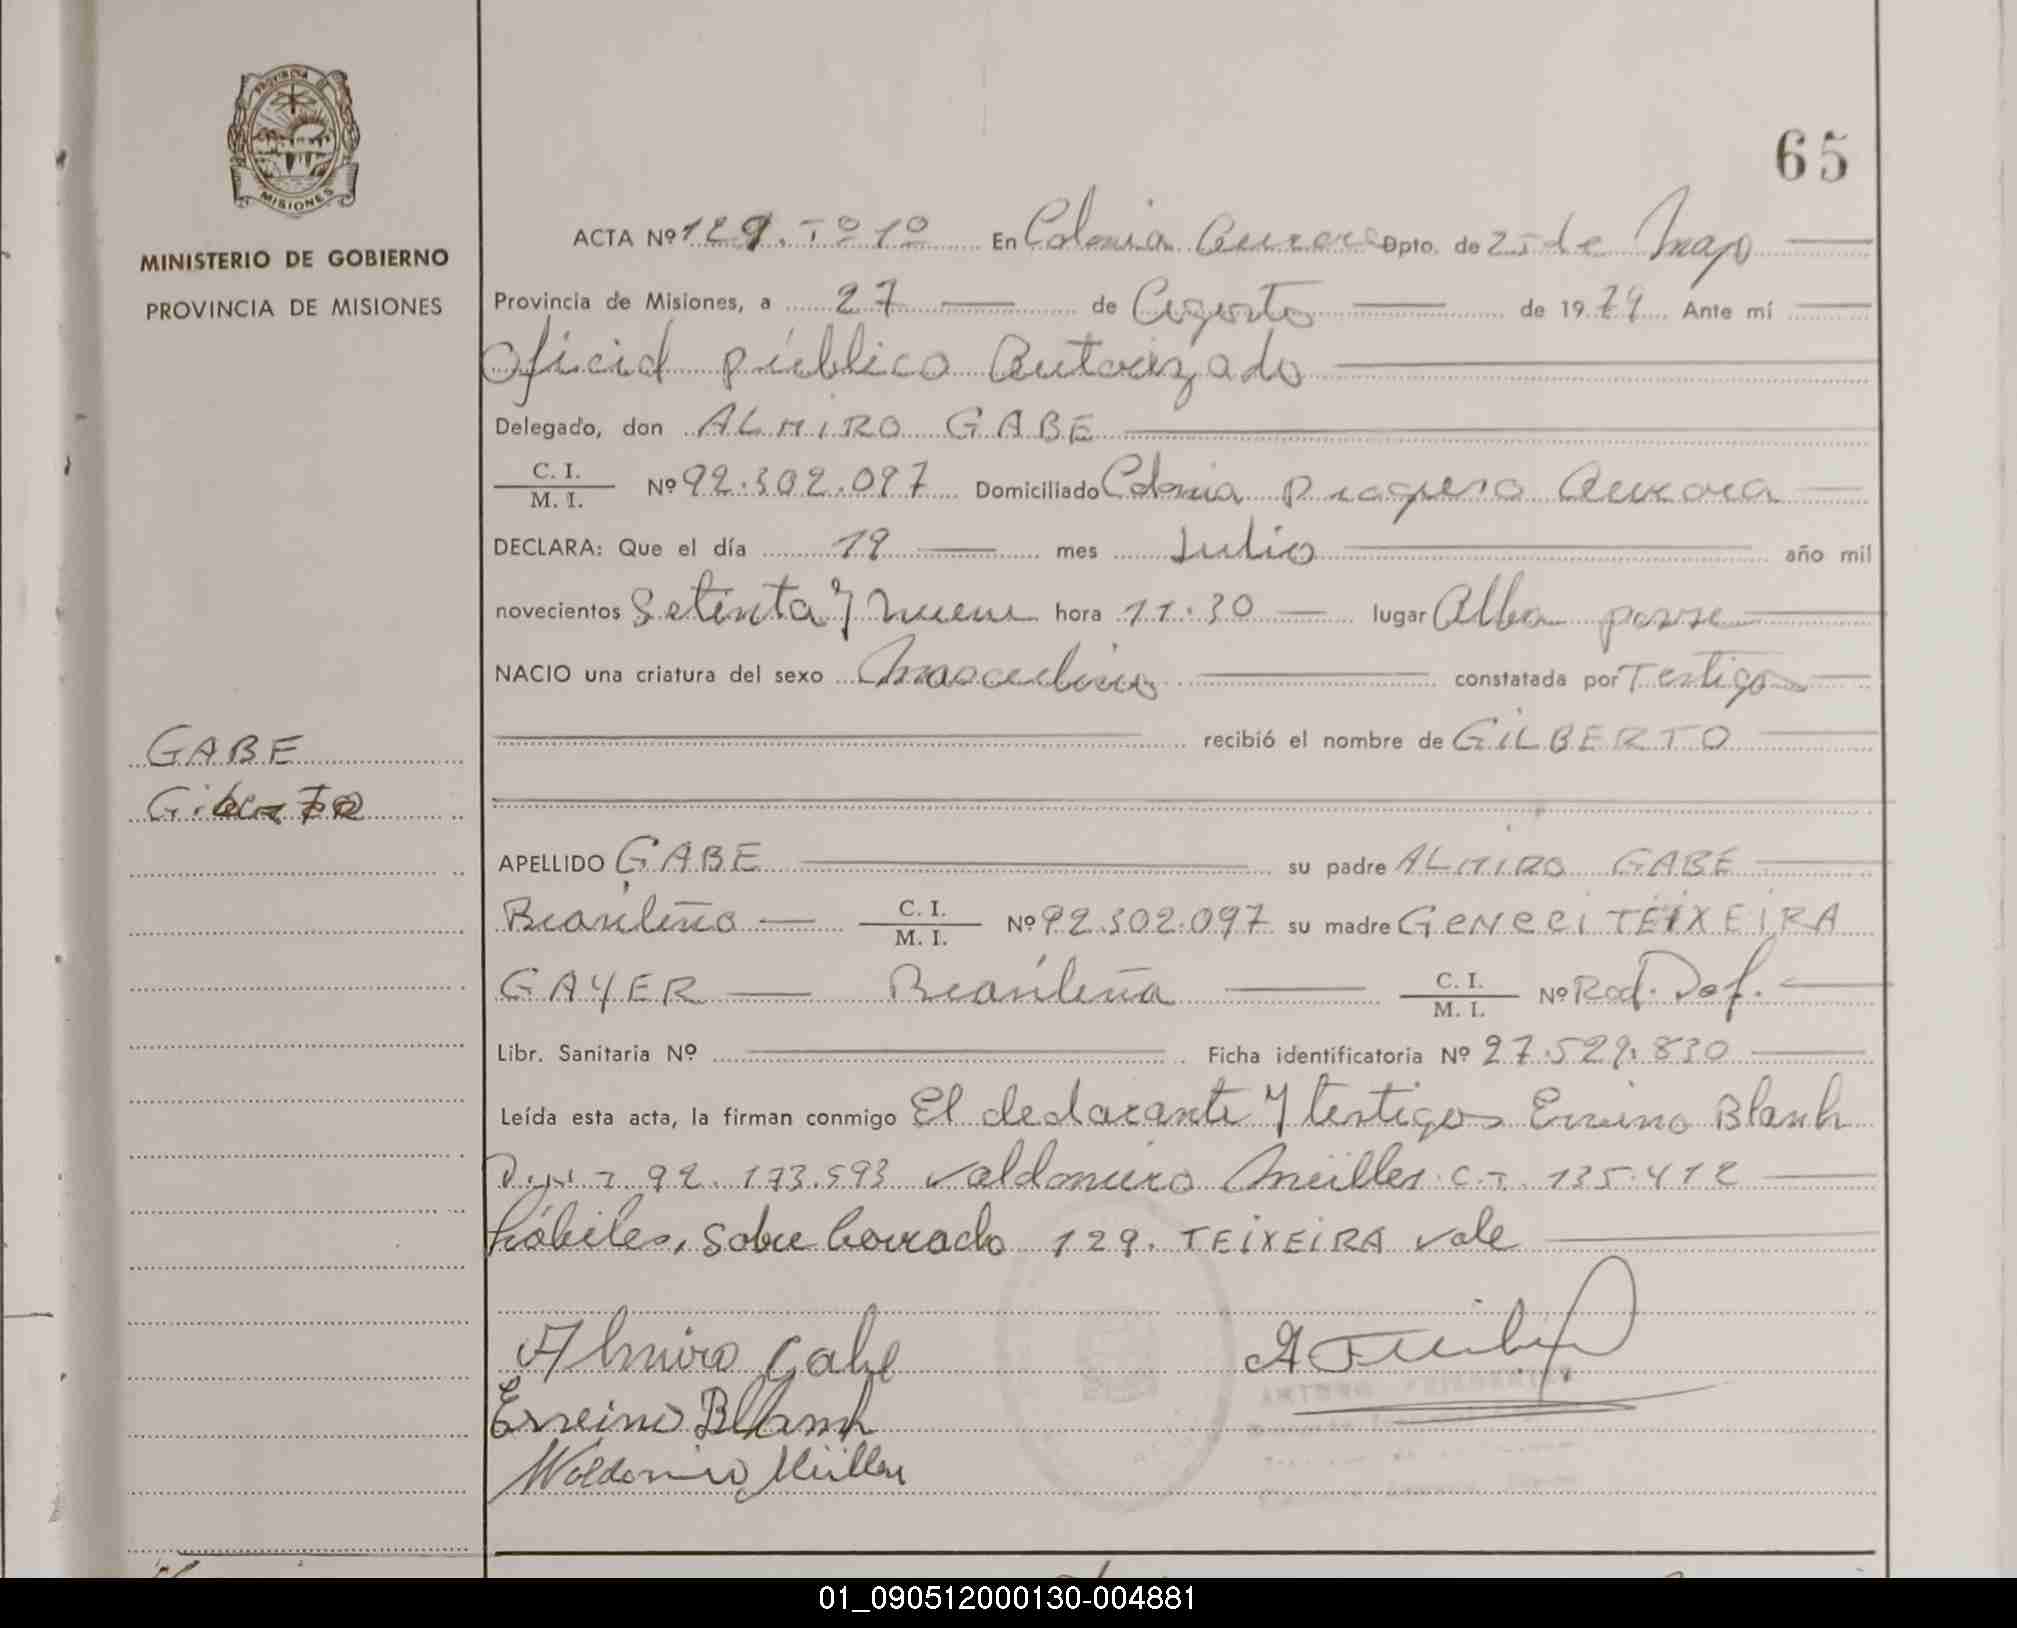 PROVINCIA DE
MISIONES
MINISTERIO DE GOBIERNO
PROVINCIA DE MISIONES
GABE
Gilberto
65
ACTA Nº 129. Tº 1º En Colonia Aurora Dpto. de 25 de Mayo
Provincia de Misiones, a 27 de Agosto de 1979 Ante mí
Oficial público Autorizado
Delegado, don ALMIRO GABE
C. I. / M. I. Nº 92.302.097 Domiciliado Colonia progreso Aurora
DECLARA: Que el día 19 mes Julio año mil
novecientos Setenta y nueve hora 11.30 lugar Alba posse
NACIO una criatura del sexo Masculino constatada por Testigos
recibió el nombre de GILBERTO
APELLIDO GABE su padre ALMIRO GABE
Brasileño C. I. / M. I. Nº 92.302.097 su madre GENECI TEIXEIRA
GAYER Brasileña C. I. / M. I. Nº Rod. Dof.
Libr. Sanitaria Nº Ficha identificatoria Nº 27.529.830
Leída esta acta, la firman conmigo El declarante y testigos Erveino Blanh
92.173.593 Valdomiro Müller C.I. 135.412
hábiles, Sobre borrado 129. TEIXEIRA vale
Almiro Gabe
Erveino Blanh
Waldomiro Müller
01_090512000130-004881